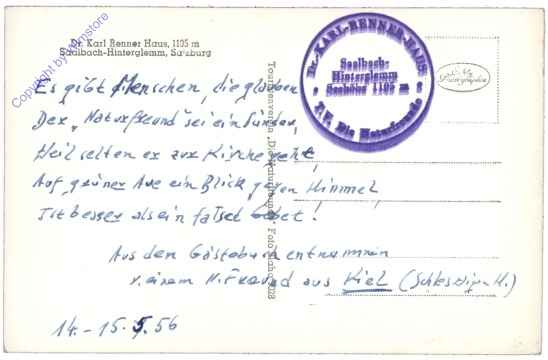 Dr. Karl Renner Haus, 1105 m
Saalbach-Hinterglemm, Salzburg
Es gibt Menschen, die glauben
Der „Naturfreund" sei ein Sünder,
Weil selten er zur Kirche geht,
Auf grüner Aue ein Blick gegen Himmel,
Ist besser als ein falsch Gebet!
Aus dem Gästebuch entnommen
v. einem N. Freund aus Kiel (Schleswig-H.)
14.-15.5.56
Dr.-KARL-RENNER-HAUS
Saalbach-
Hinterglemm
Seehöhe 1105 m
T.V. Die Naturfreunde
Touristenverein „Die Naturfreunde" Foto
Copyright by
store